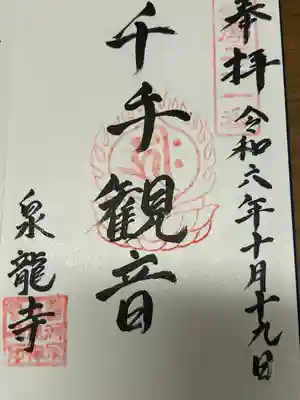 奉拝 令和六年十月十九日
千手観音
泉龍寺